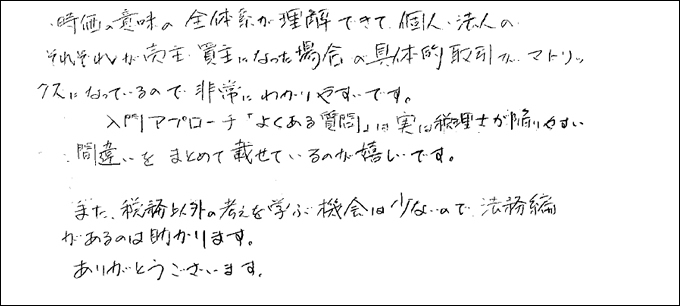 時価の意味の全体系が理解できて、個人・法人の
それぞれが売主・買主になった場合の具体的取引が、マトリッ
クスになっているので非常にわかりやすいです。
入門アプローチ「よくある質問」は実は税理士が陥りやすい
間違いをまとめて載せているのが嬉しいです。
また、税務以外の考えを学ぶ機会は少ないので、法務編
があるのは助かります。
ありがとうございます。